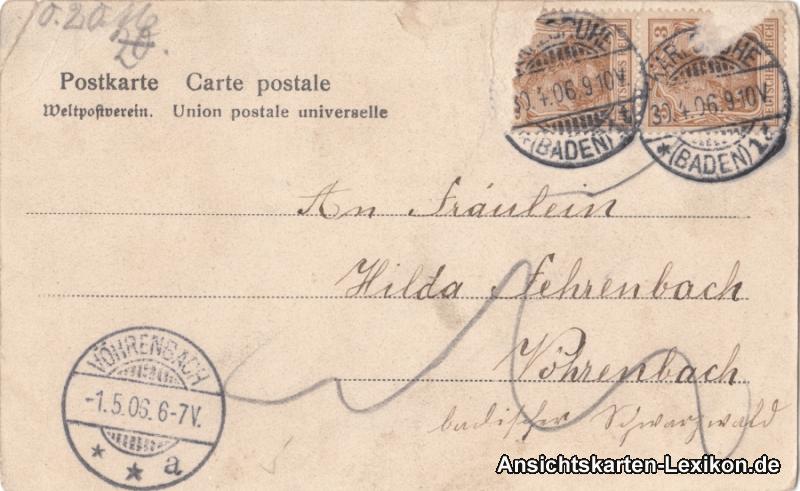 Postkarte Carte postale
Weltpostverein. Union postale universelle
3
DEUTSCHES REICH
KARLSRUHE
30.4.06.9-10V.
*(BADEN) 1
KARLSRUHE
30.4.06.9-10V.
*(BADEN) 1
An Fräulein
Hilda Fehrenbach
Vöhrenbach
badischer Schwarzwald
VÖHRENBACH
-1.5.06. 6-7V.
* * a
Ansichtskarten-Lexikon.de